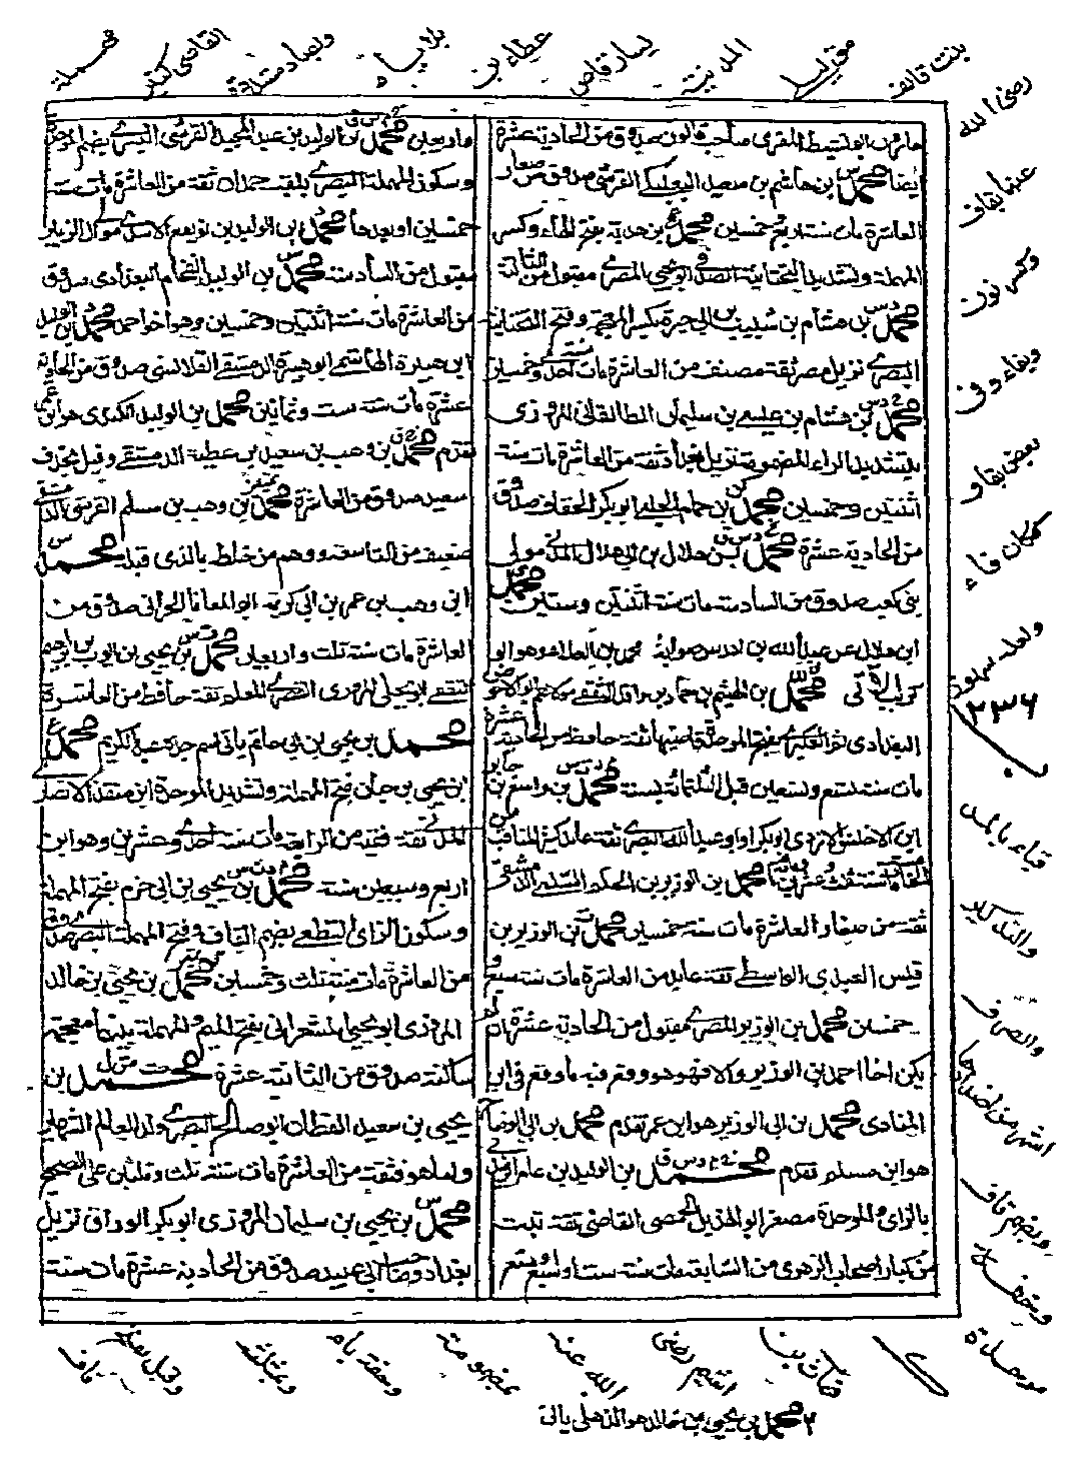 هارون ابو نشيط المقرى صاحب قالون صدوق من الحادية عشرة
ايضا محمد بن هاشم بن سعيد البعلبكى القرشى صدوق من صغار
العاشرة مات سنة اربع وخمسين محمد بن هدية بفتح الهاء وكسر
المهملة وتشديد التحتانية الصدفى ابو يحيى المصرى مقبول من الثالثة
محمد بن هشام بن شبيب بن ابى خيرة بكسر المعجمة وفتح التحتانية
البصرى نزيل مصر ثقة مصنف من العاشرة مات سنة احدى وخمسين
محمد بن هشام بن عيسى بن سليمان الطالقانى المروزى
بتشديد الراء المضمومة نزيل بغداد ثقة من العاشرة مات سنة
اثنتين وخمسين محمد بن همام الحلبى ابو بكر الخفاف صدوق
من الحادية عشرة محمد بن هلال بن ابى هلال المدنى مولى
بنى كعب صدوق من السادسة مات سنة اثنتين وستين محمد
ابن هلال عن عبد الله بن ادريس صوابه محمد بن العلاء وهو ابو
كريب الآتى محمد بن الهيثم بن حماد بن واقد الثقفى مولاهم ابو الاحوص
البغدادى ثم العكبرى بفتح الموحدة قاضيها ثقة حافظ من الحادية عشرة
مات سنة تسع وتسعين قبل الثلثمائة بسنة محمد بن واسع بن جابر
ابن الاخنس الازدى ابو بكر او ابو عبد الله البصرى ثقة عابد كثير المناقب من
الخامسة مات سنة ثلث وعشرين محمد بن الوزير بن الحكم السلمى الدمشقى
ثقة من صغار العاشرة مات سنة خمسين محمد بن الوزير بن
قيس العبدى الواسطى ثقة عابد من العاشرة مات سنة سبع و
خمسين محمد بن الوزير المصرى مقبول من الحادية عشرة ان لم
يكن اخا احمد بن الوزير والا فهو هو ووقع فيه ما وقع فى ابن
المنادى محمد بن ابى الوزير هو ابن عمر تقدم محمد بن ابى الوضاح
هو ابن مسلم تقدم محمد بن الوليد بن عامر الزبيدى
بالزاى والموحدة مصغر ابو الهذيل الحمصى القاضى ثقة ثبت
من كبار اصحاب الزهرى من السابعة مات سنة ست او سبع او تسع
واربعين محمد بن الوليد بن عبد المجيد القرشى البسرى بضم الموحدة
وسكون المهملة البصرى يلقب حمدان ثقة من العاشرة مات سنة
خمسين او بعدها محمد بن الوليد بن نويفع الاسدى مولى ال الزبير
مقبول من السادسة محمد بن الوليد الفحام البغدادى صدوق
من العاشرة مات سنة اثنتين وخمسين وهو اخو احمد محمد بن الوليد
ابن هبيرة الهاشمى ابو هبيرة الدمشقى القلانسى صدوق من الحادية
عشرة مات سنة ست وثمانين محمد بن الوليد الكندى هو ابن عمر
تقدم محمد بن وهب بن سعيد بن عطية الدمشقى وقيل بحذف
سعيد صدوق من العاشرة محمد بن وهب بن مسلم القرشى الدمشقى
ضعيف من التاسعة ووهم من خلطه بالذى قبله محمد
ابن وهب بن عمر بن ابى كريمة ابو المعافا الحرانى صدوق من
العاشرة مات سنة ثلث واربعين محمد بن يحيى بن ايوب بن ابراهيم
الثقفى بن يحيى المروزى القصرى المعلم ثقة حافظ من العاشرة
محمد بن يحيى بن ابى حاتم ياتى اسم جده عبد الكريم محمد
ابن يحيى بن حبان بفتح المهملة وتشديد الموحدة ابن منقذ الانصارى
المدنى ثقة فقيه من الرابعة مات سنة احدى وعشرين وهو ابن
اربع وسبعين سنة محمد بن يحيى بن ابى حزم بفتح المهملة
وسكون الزاى القطعى بضم القاف وفتح المهملة البصرى صدوق
من العاشرة مات سنة ثلث وخمسين محمد بن يحيى بن خالد
المروزى ابو يحيى المشعرانى بفتح الميم والمهملة بينهما معجمة
ساكنة صدوق من الثانية عشرة محمد بن
يحيى بن سعيد القطان ابو صالح البصرى ولد العالم الشهير
ولما هو فثقة من العاشرة مات سنة ثلث وثلثين على الصحيح
محمد بن يحيى بن سليمان المروزى ابو بكر الوراق نزيل
بغداد وصاحب ابى عبيد صدوق من الحادية عشرة مات سنة
رضى الله
عنها بقاف
وكسر نون
وبفاء وفى
بعض بقاف و
مكان فاء
ولعله سهو
٢٣٦
والتذكير
والصرف
اشهر من اضدادها
وبضم قاف
وبخفة
موحدة
الله عنه
٢ محمد بن يحيى بن خالد هو الذهلى ياتى